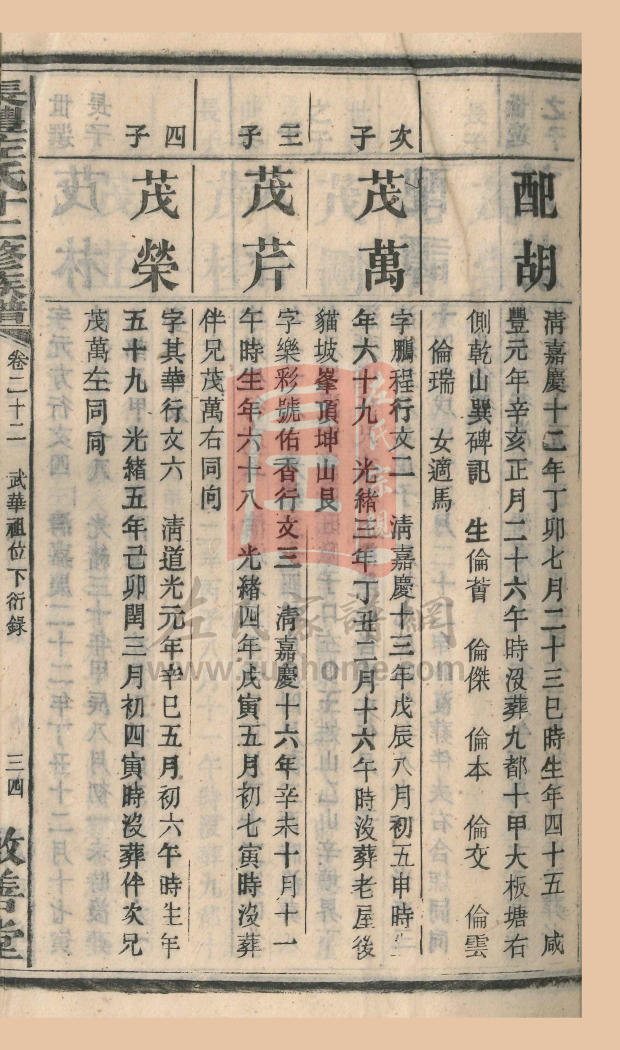 配胡
清嘉慶十二年丁卯七月二十三巳時生年四十五 咸
豐元年辛亥正月二十六午時沒葬九都十甲大板塘右
側乾山巽碑記 生倫萻 倫傑 倫本 倫交 倫雲
倫瑞 女適馬
次子
茂萬
字鵬程行文二 清嘉慶十三年戊辰八月初五申時生
年六十九 光緒三年丁丑二月十六午時沒葬老屋後
貓坡峯頂坤山艮
三子
茂芹
字樂彩號佑香行文三 清嘉慶十六年辛未十月十一
午時生年六十八 光緒四年戊寅五月初七寅時沒葬
伴兄茂萬右同向
四子
茂榮
字其華行文六 清道光元年辛巳五月初六午時生年
五十九 光緒五年己卯閏三月初四寅時沒葬伴次兄
茂萬左同向
左氏十二修族譜 卷二十二 武華祖位下衍錄 三四 敦善堂
左氏宗親
左氏家譜網
www.zuohome.com